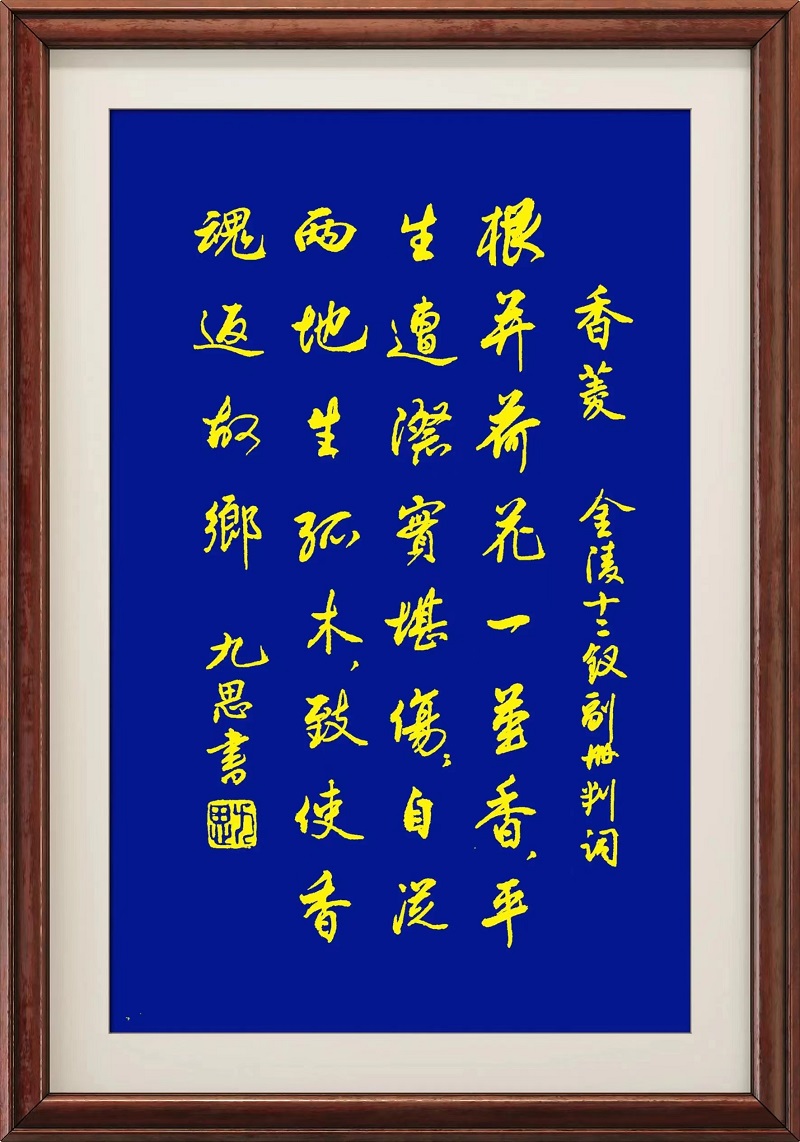 香菱 金陵十二釵副册判词
根并荷花一莖香，平
生遭際實堪傷；自從
兩地生孤木，致使香
魂返故鄉 九思書
九思